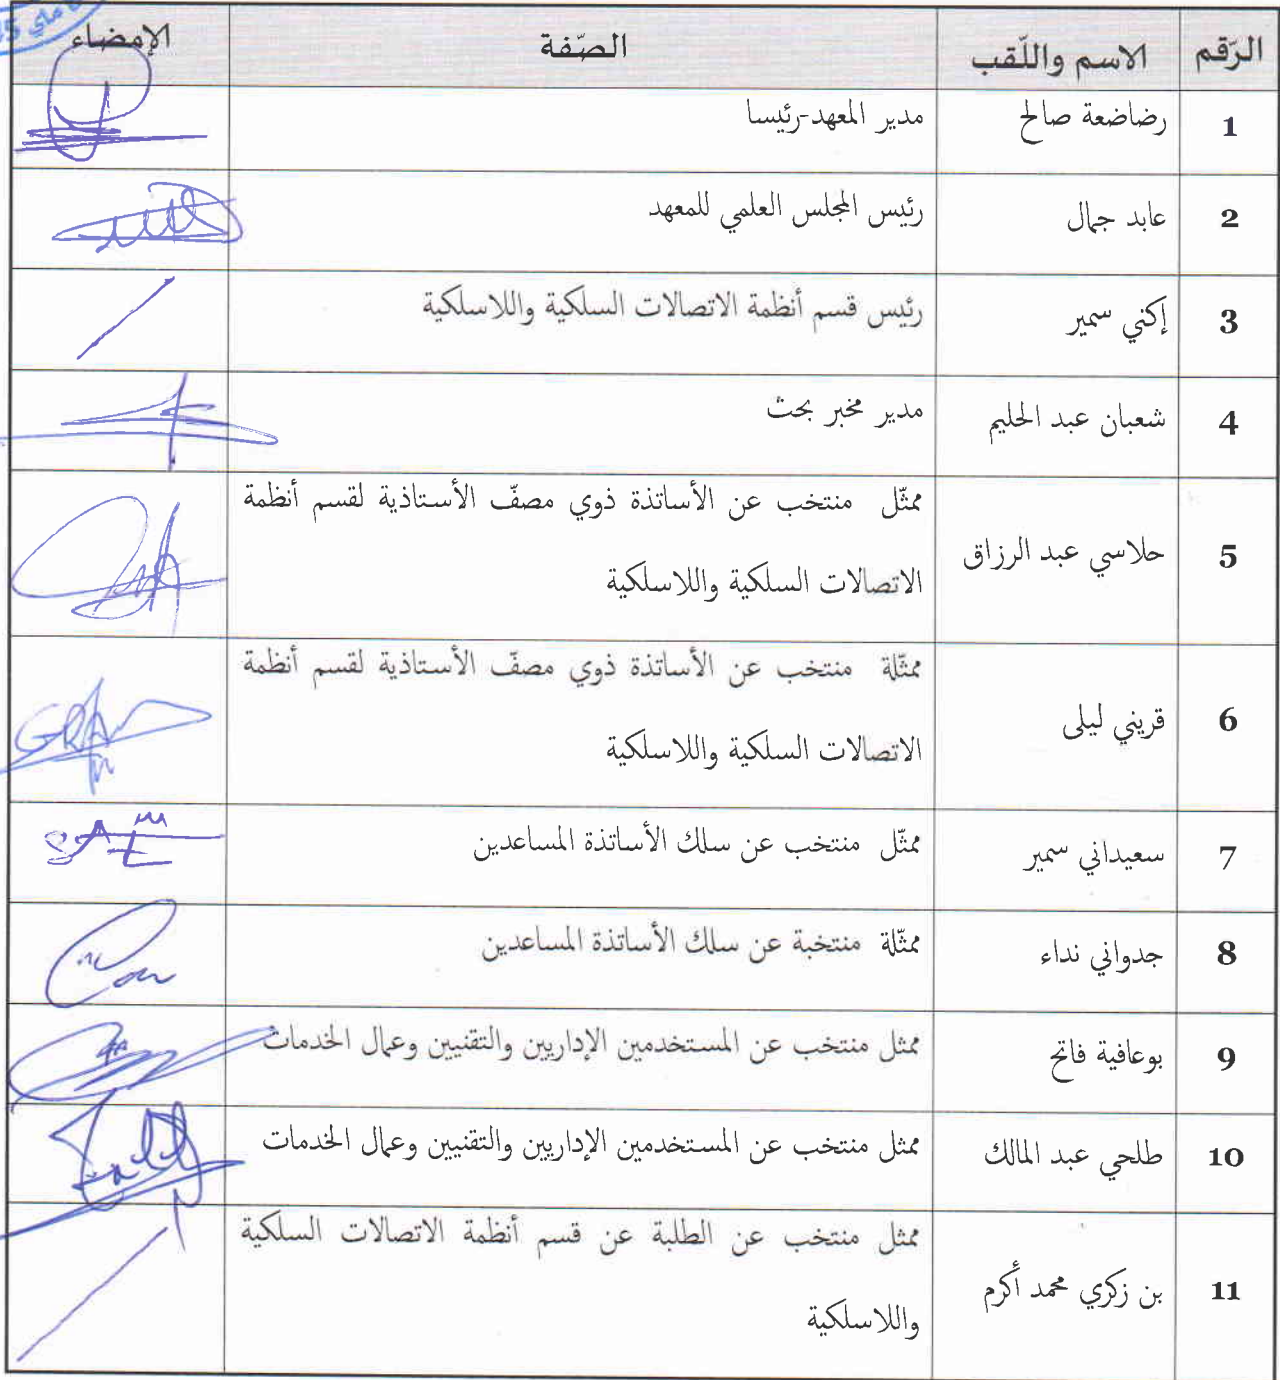 الرّقم الاسم واللّقب الصّفة الإمضاء
1 رضاضعة صالح مدير المعهد-رئيسا
2 عابد جمال رئيس المجلس العلمي للمعهد
3 إكني سمير رئيس قسم أنظمة الاتصالات السلكية واللاسلكية
4 شعبان عبد الحليم مدير مخبر بحث
5 حلاسي عبد الرزاق ممثّل منتخب عن الأساتذة ذوي مصفّ الأستاذية لقسم أنظمة
الاتصالات السلكية واللاسلكية
6 قريني ليلى ممثّلة منتخب عن الأساتذة ذوي مصفّ الأستاذية لقسم أنظمة
الاتصالات السلكية واللاسلكية
7 سعيداني سمير ممثّل منتخب عن سلك الأساتذة المساعدين
8 جدواني نداء ممثّلة منتخبة عن سلك الأساتذة المساعدين
9 بوعافية فاتح ممثل منتخب عن المستخدمين الإداريين والتقنيين وعمال الخدمات
10 طلحي عبد المالك ممثل منتخب عن المستخدمين الإداريين والتقنيين وعمال الخدمات
11 بن زكري محمد أكرم ممثل منتخب عن الطلبة عن قسم أنظمة الاتصالات السلكية
واللاسلكية